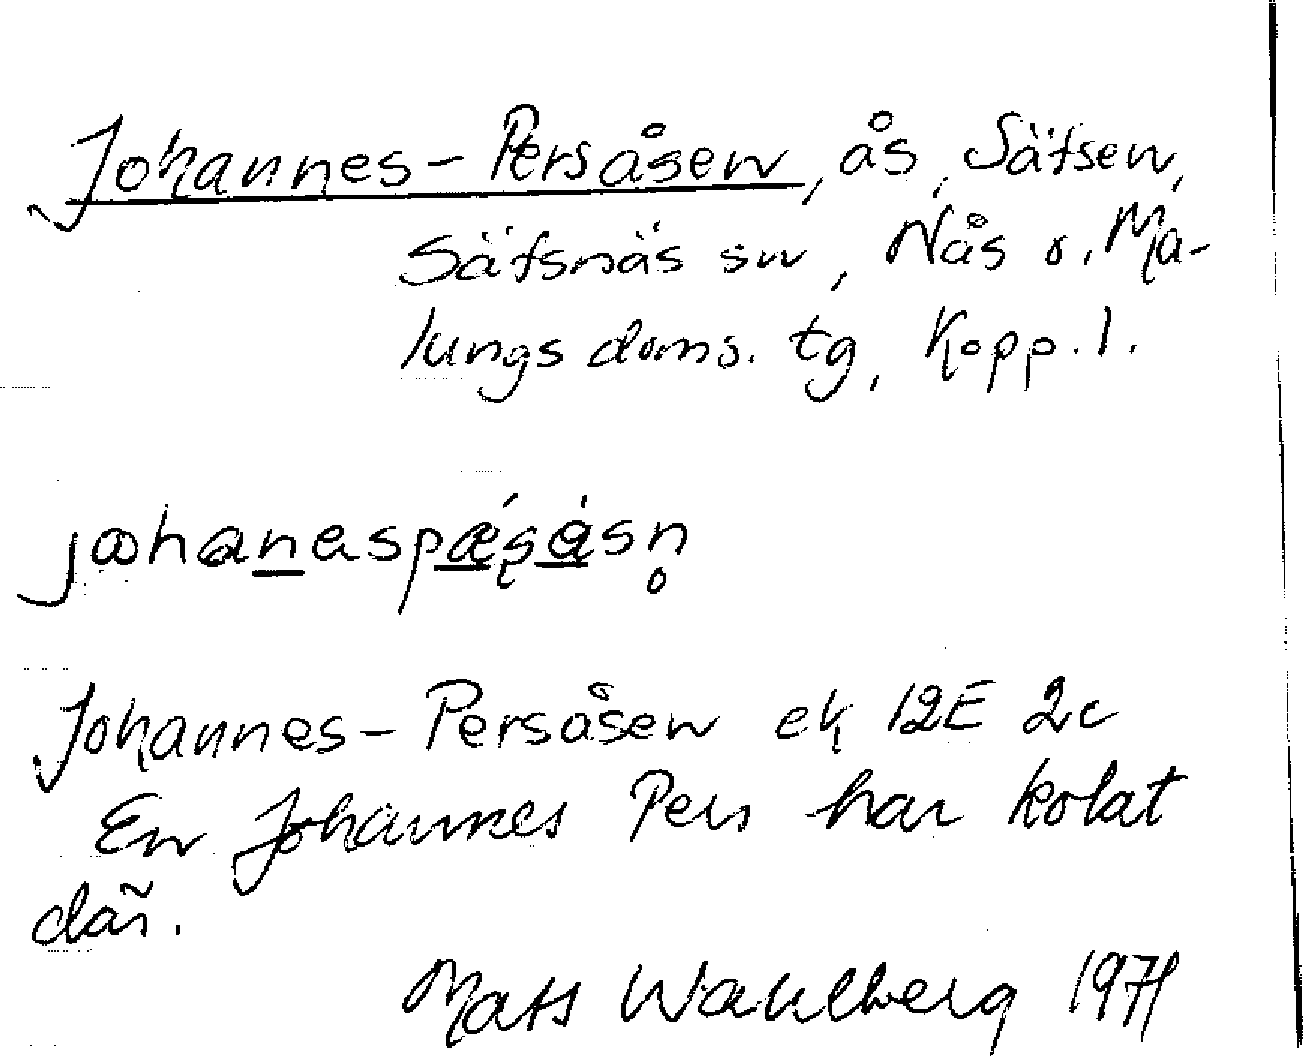 Johannes-Persåsen, ås, Säfsen,
Säfsnäs sn, Nås o. Ma-
lungs doms. tg, Kopp. l.
Johannes-Persåsen ek 12E 2c
En Johannes Pers har kolat
där.
Mats Wahlberg 1971